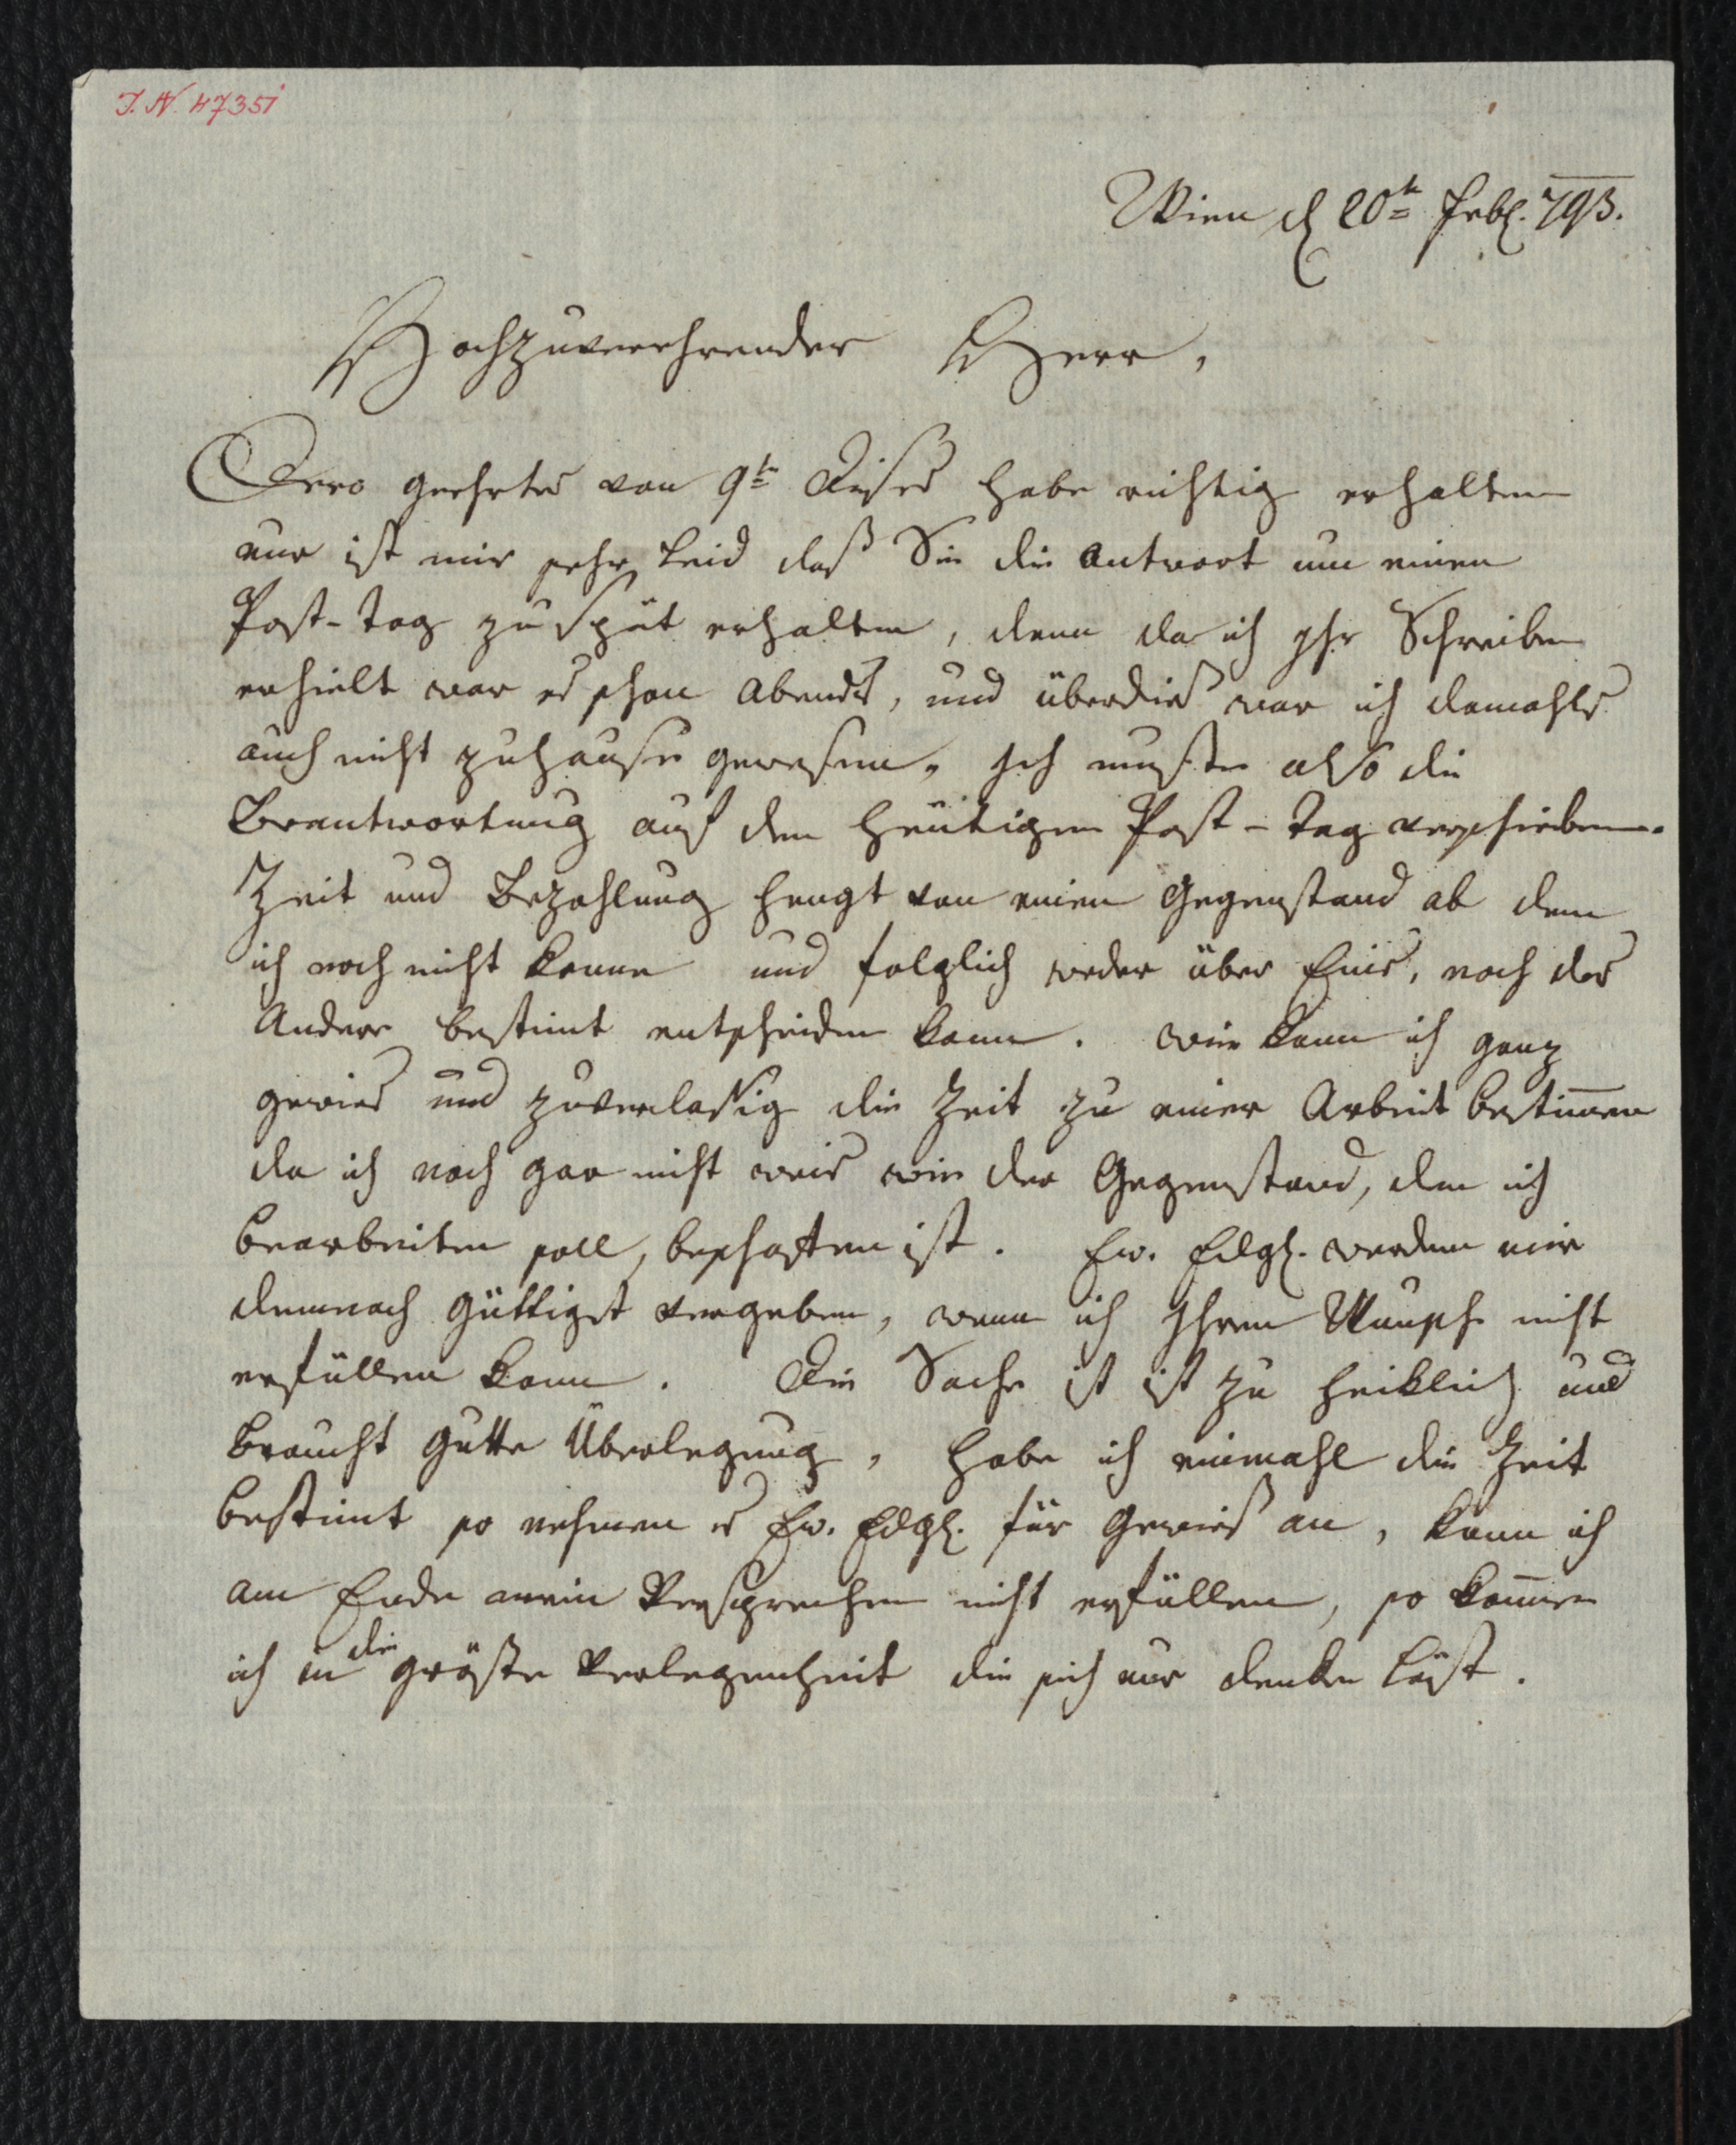 I. N. 47351
Wien d 20t Febr. 793.
Hochzuverehrender Herr,
Dero geehrtes von 9tn Dieses habe richtig erhalten
nur ist mir sehr Leid daß Sie die Antwort um einen
Post-Tag zu spät erhalten, denn da ich Ihr Schreiben
erhielt war es schon Abends, und überdies war ich damahls
auch nicht zuhause gewesen. Ich muste also die
Beantwortung auf den heütigen Post-Tag verschieben.
Zeit und Bezahlung hengt von einen Gegenstand ab den
ich noch nicht kenne und folglich weder über Eins, noch das
Andere bestimt entscheiden kann. Wie kann ich ganz
gewies und zuverlasig die Zeit zu einer Arbeit bestim̄en
da ich noch gar nicht weis wie der Gegenstand, den ich
bearbeiten soll, beschaffen ist. Ew. Edlgl. werden mir
demnach güttigst vergeben, wenn ich Ihren Wunsch nicht
erfüllen kann. Die Sache ist ist zu heiklich und
braucht gutte Überlegung, habe ich einmahl die Zeit
bestimt so nehmen es Ew. Edgl. für Gewies an, kann ich
am Ende mein Versprechen nicht erfüllen, so kom̄e
ich in die gröste Verlegenheit die sich nur denken läst.